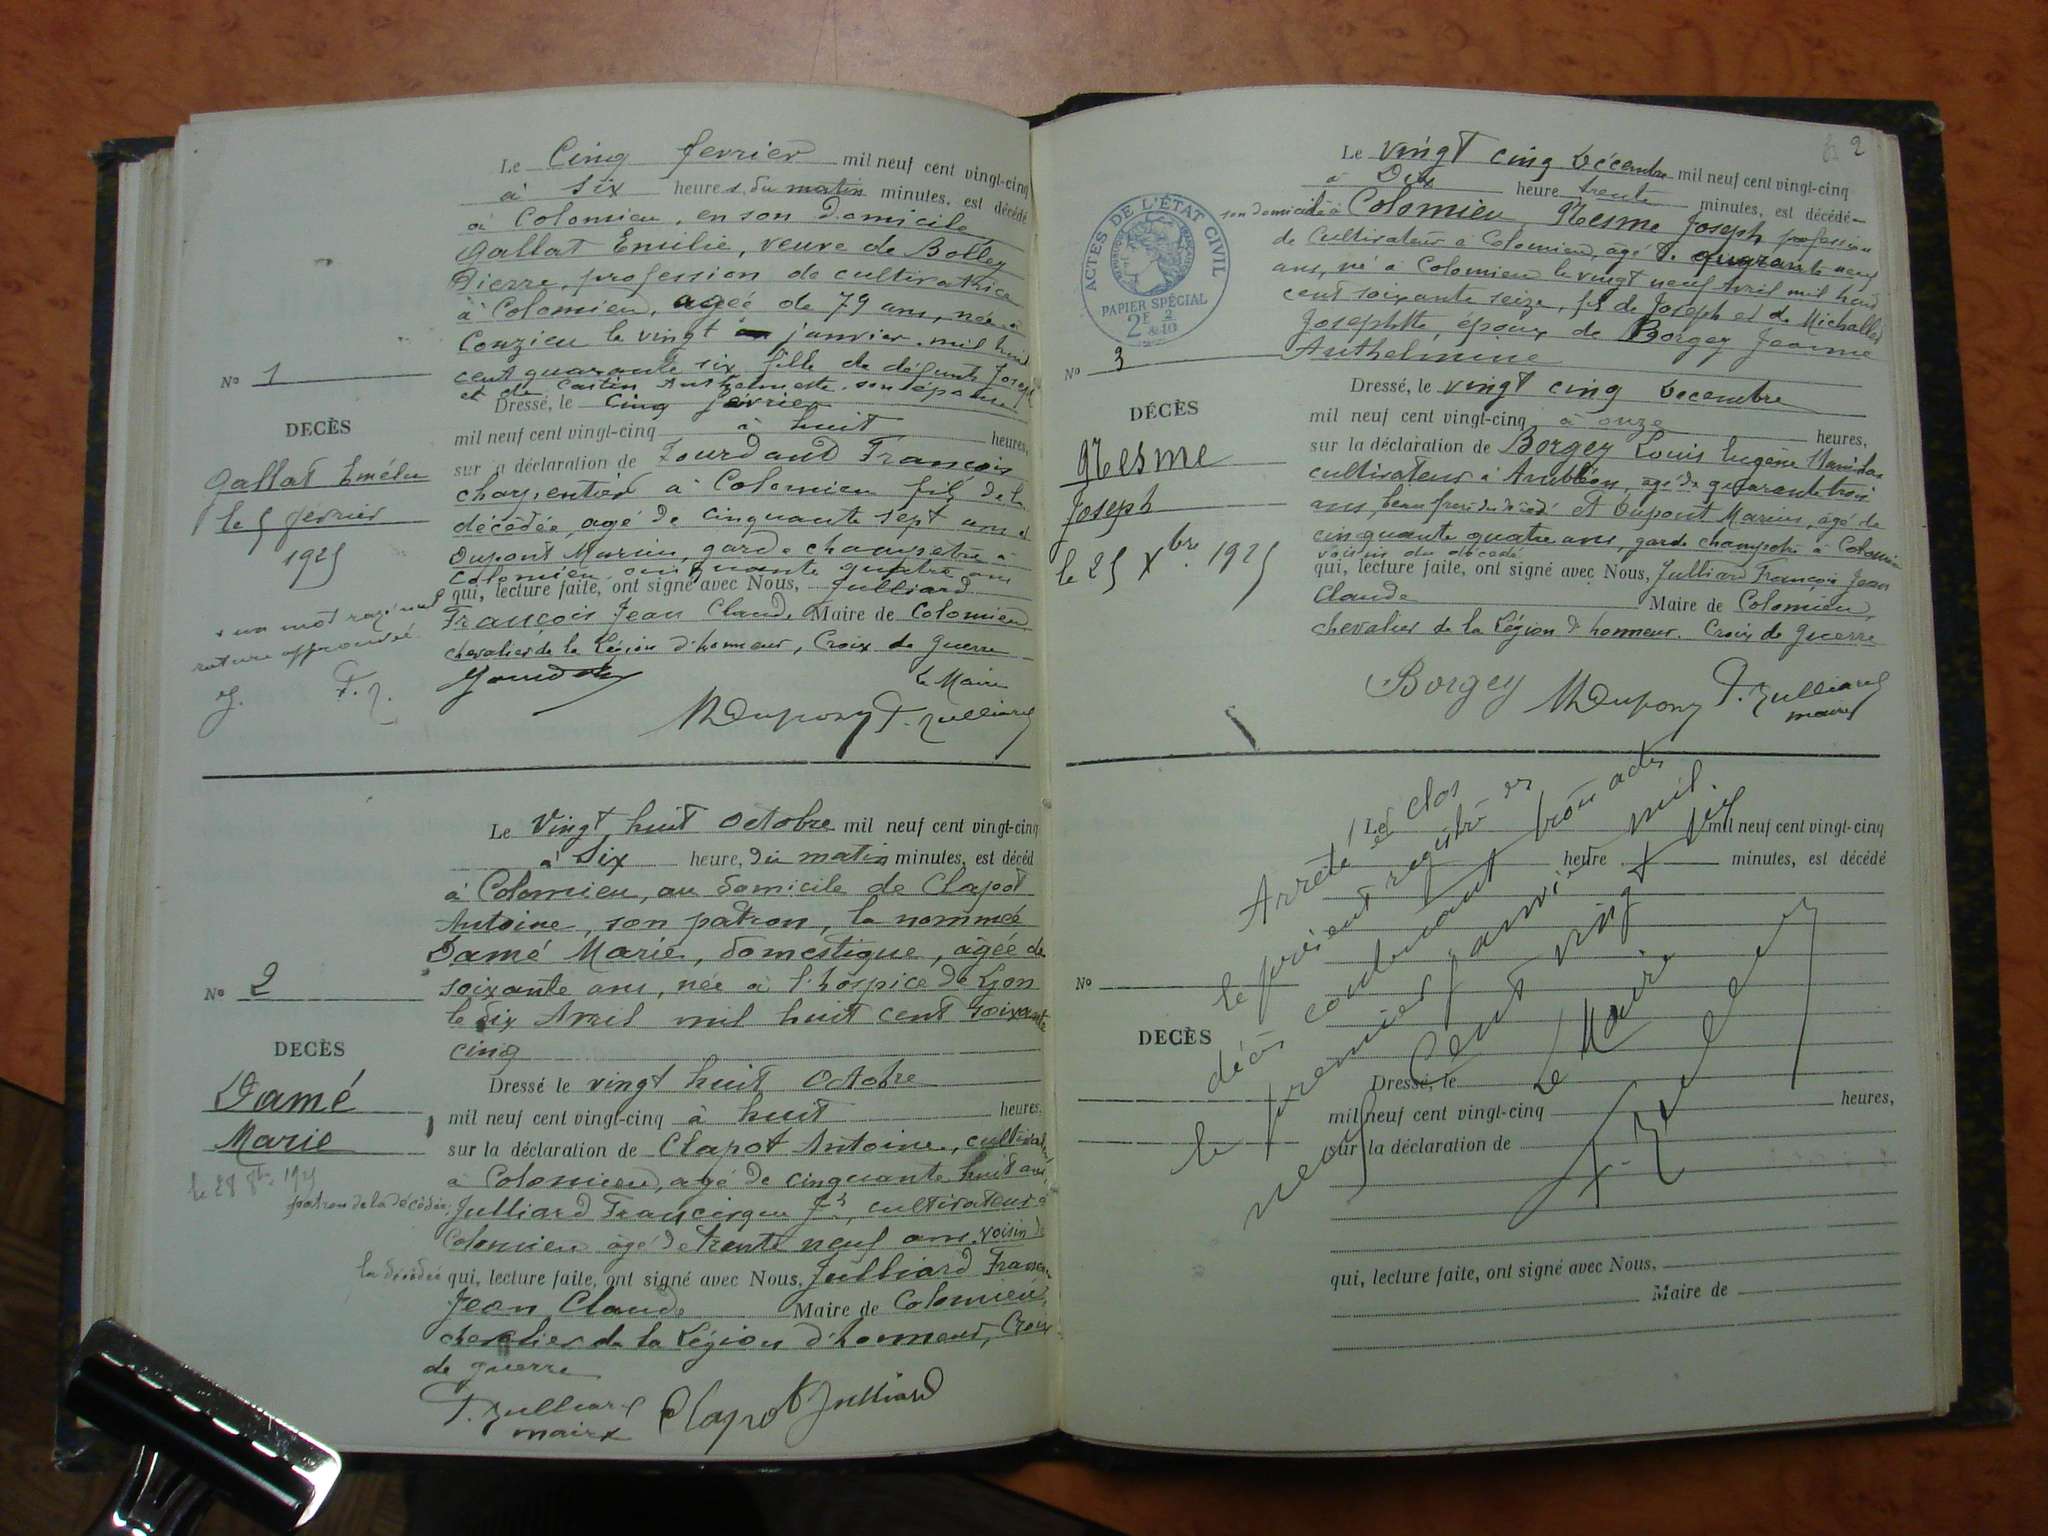 Le Cinq fevrier mil neuf cent vingt-cinq
à six heures du matin minutes, est décédé
à Colomieu, en son domicile
Gallat Emilie, veuve de
Pierre, profession de cultivatrice
à Colomieu, agée de 79 ans, née à
Conzieu le vingt janvier mil huit
cent quarante six fille de défunt Joseph
et de son épouse
No 1
Dressé, le cinq février
DECÈS
mil neuf cent vingt-cinq à huit heures,
Gallat Emélie
sur la déclaration de François
charpentier à Colomieu fils de la
le 5 fevrier
décédée, agé de cinquante sept ans et
1925
Dupont Marius, garde champetre à
Colomieu cinquante quatre ans
qui, lecture faite, ont signé avec Nous, Julliard
François Jean Claude Maire de Colomieu
un mot rayé nul
rature approuvée
chevalier de la Légion d'honneur, Croix de guerre
le Maire
MDupont F. Julliard
Le Vingt huit Octobre mil neuf cent vingt-cinq
à six heure, du matin minutes, est décéd
à Colomieu, au domicile de Clapot
Antoine, son patron, la nommée
Damé Marie, domestique, âgée de
soixante ans, née à l'hospice de Lyon
No 2
le dix Avril mil huit cent soixante
cinq
DECÈS
Dressé le vingt huit Octobre
Damé
mil neuf cent vingt-cinq à huit heures,
Marie
sur la déclaration de Clapot Antoine, cultivateur
le 28 8bre 1925
à Colomieu, agé de cinquante huit ans,
patron de la décédée;
Julliard Francisque fils, cultivateur à
Colomieu agé de trente neuf ans voisin de
la décédée qui, lecture faite, ont signé avec Nous, Julliard François
Jean Claude Maire de Colomieu,
chevalier de la Légion d'honneur, Croix
de guerre
F. Julliard Clapot Julliard
maire
2
Le vingt cinq Décembre mil neuf cent vingt-cinq
à Dix heure trente minutes, est décédé
son domicile à Colomieu Nesme Joseph profession
de Cultivateur à Colomieu, agé de quarante neuf
ans, né à Colomieu le vingt neuf Avril mil huit
cent soixante seize, fils de Joseph et de Michallet
Josephte, époux de Borgey Jeanne
Anthelmine
ACTES DE L'ÉTAT CIVIL
PAPIER SPÉCIAL
2F 2/10
No 3
Dressé, le vingt cinq Decembre
DÉCÈS
mil neuf cent vingt-cinq à onze heures,
Nesme
sur la déclaration de Borgey Louis Eugène Stanislas
cultivateur à Ambléon, agé de quarante trois
Joseph
ans, beau frere du décédé et Dupont Marius, âgé de
le 25 Xbre 1925
cinquante quatre ans, garde champetre à Colomieu
voisin du décédé
qui, lecture faite, ont signé avec Nous, Julliard François Jean
Claude Maire de Colomieu,
chevalier de la Légion d'honneur. Croix de guerre
Borgey MDupont F. Julliard
maire
Le mil neuf cent vingt-cinq
heure minutes, est décédé
No
DECÈS
Dressé, le
mil neuf cent vingt-cinq heures,
sur la déclaration de
qui, lecture faite, ont signé avec Nous,
Maire de
Arrêté et clos
le présent registre
décès contenant trois actes
le premier janvier mil
neuf cent vingt six
Le Maire